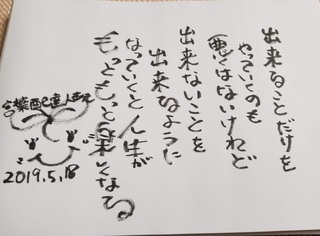 出来ることだけを
やっていくのも
悪くはないけれど
出来ないことを
出来るように
なっていくと人生が
もっともっと楽しくなる
言葉配達人
2019.5.18